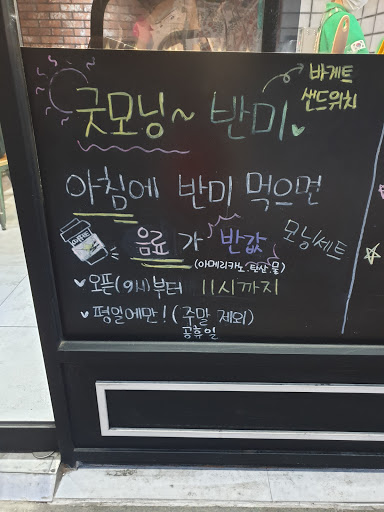 굿모닝~ 반미
바게트
샌드위치
아침에 반미 먹으면
음료가 반값
모닝세트
(아메리카노, 탄산, 물)
오픈(9시)부터 11시까지
평일에만! (주말 제외)
공휴일